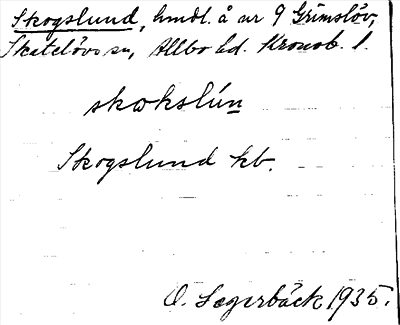 Skogslund, hmdl. å nr 9 Grimslöv,
Skatelövs sn, Allbo hd. Kronob. l.
skokslún
Skogslund kb.
O. Lagerbäck 1935.